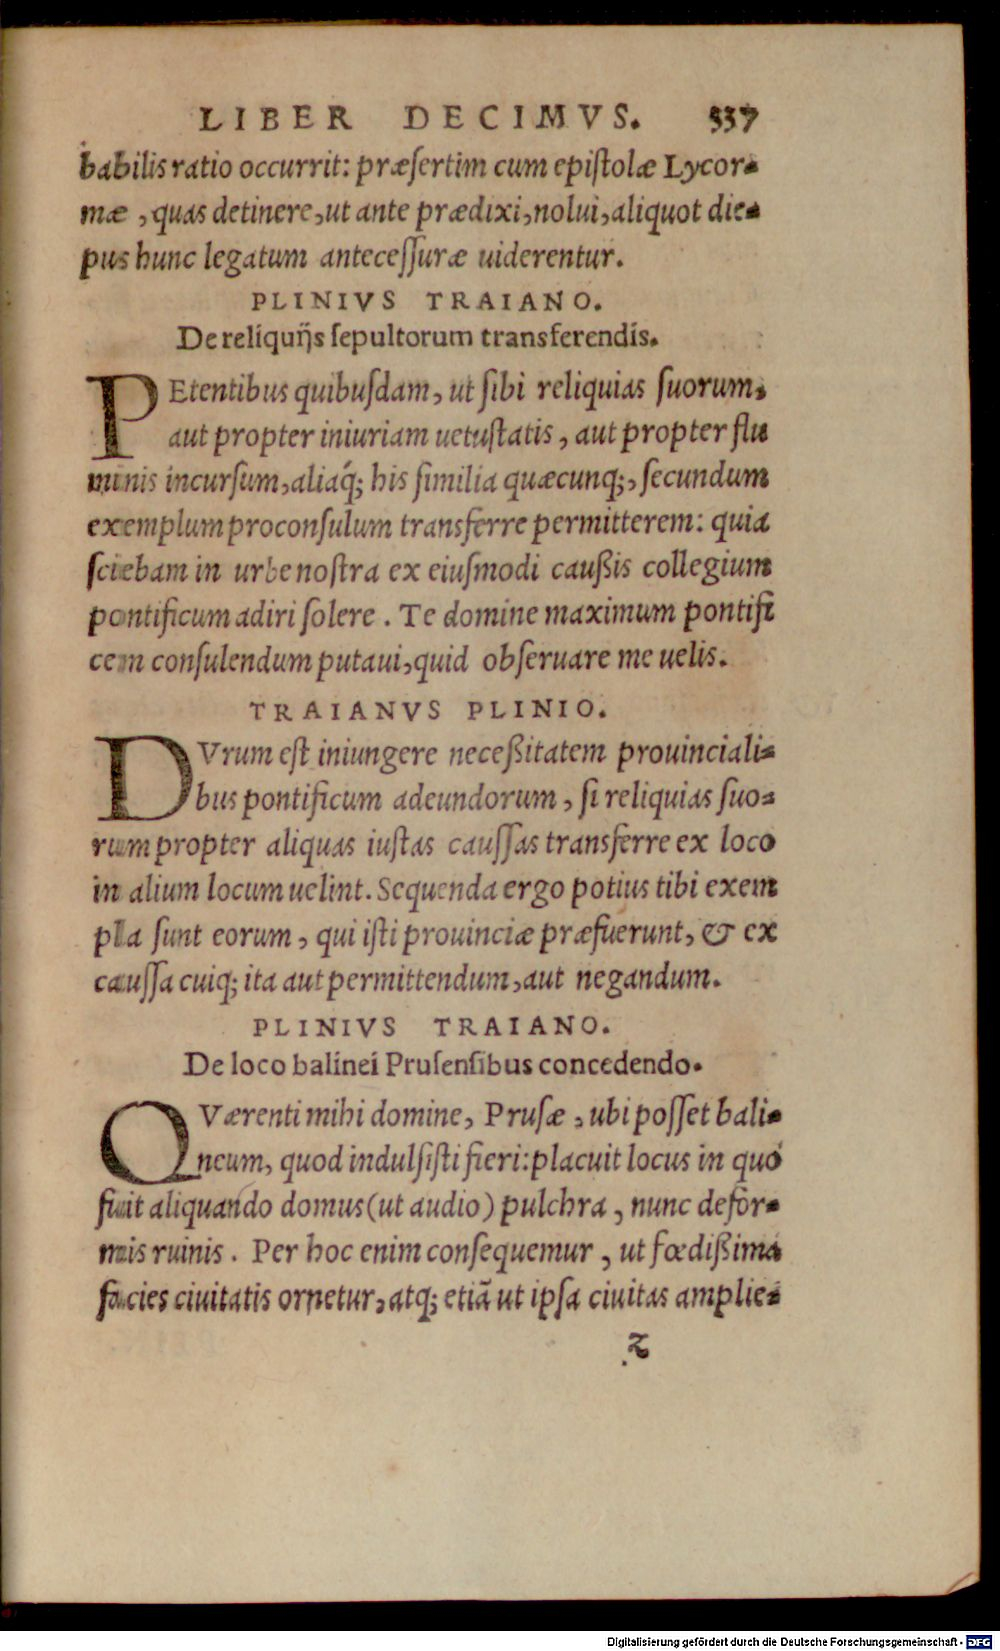 LIBER DECIMVS. 337
babilis ratio occurrit: præsertim cum epistolæ Lycor-
mæ, quas detinere, ut ante prædixi, nolui, aliquot die-
pus hunc legatum antecessuræ uiderentur.
PLINIVS TRAIANO.
De reliquijs sepultorum transferendis.
PEtentibus quibusdam, ut sibi reliquias suorum,
aut propter iniuriam uetustatis, aut propter flu
minis incursum, aliaq́; his similia quæcunq;, secundum
exemplum proconsulum transferre permitterem: quia
sciebam in urbe nostra ex eiusmodi caußis collegium
pontificum adiri solere. Te domine maximum pontifi
cem consulendum putaui, quid obseruare me uelis.
TRAIANVS PLINIO.
DVrum est iniungere neceßitatem prouinciali-
bus pontificum adeundorum, si reliquias suo-
rum propter aliquas iustas caussas transferre ex loco
in alium locum uelint. Sequenda ergo potius tibi exem
pla sunt eorum, qui isti prouinciæ præfuerunt, & ex
caussa cuiq; ita aut permittendum, aut negandum.
PLINIVS TRAIANO.
De loco balinei Prusensibus concedendo.
QVærenti mihi domine, Prusæ, ubi posset bali-
neum, quod indulsisti fieri: placuit locus in quo
fuit aliquando domus (ut audio) pulchra, nunc defor-
mis ruinis. Per hoc enim consequemur, ut fœdißima
facies ciuitatis ornetur, atq; etiã ut ipsa ciuitas amplie-
z
Digitalisierung gefördert durch die Deutsche Forschungsgemeinschaft - DFG